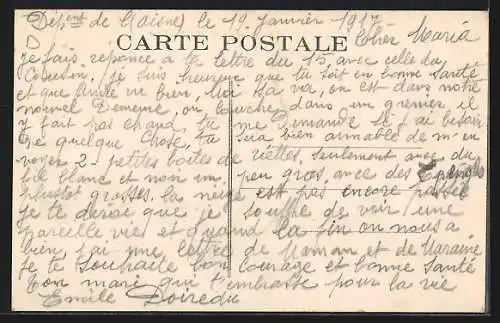 Dépent de l'Aisne, le 19 Janvier 1917
CARTE POSTALE
Cher Maria
je fais réponce a ta lettre du 15, avec celle du
je suis heureux que tu soit en bonne santé
et que va bien, Moi sa va, on est dans notre
nouvel Demeure, on couche dans un grenier, il
y fait pas chaud, tu me Demande si j'ai besoin
de quelque chose, tu sera bien aimable de m'en
voyer 2 petites boites de seulement avec du
fil blanc et non un peu gros, avec des Epingles
plustot grosses. la neige est pas encore passée
je te dirai que je souffre de voir une
pareille vie et quand la fin on nous a
bien, j'ai une lettre de Maman et de Maraine
je te souhaite bon Courage et bonne Santé
Ton mari qui t'embrasse pour la vie
Emile